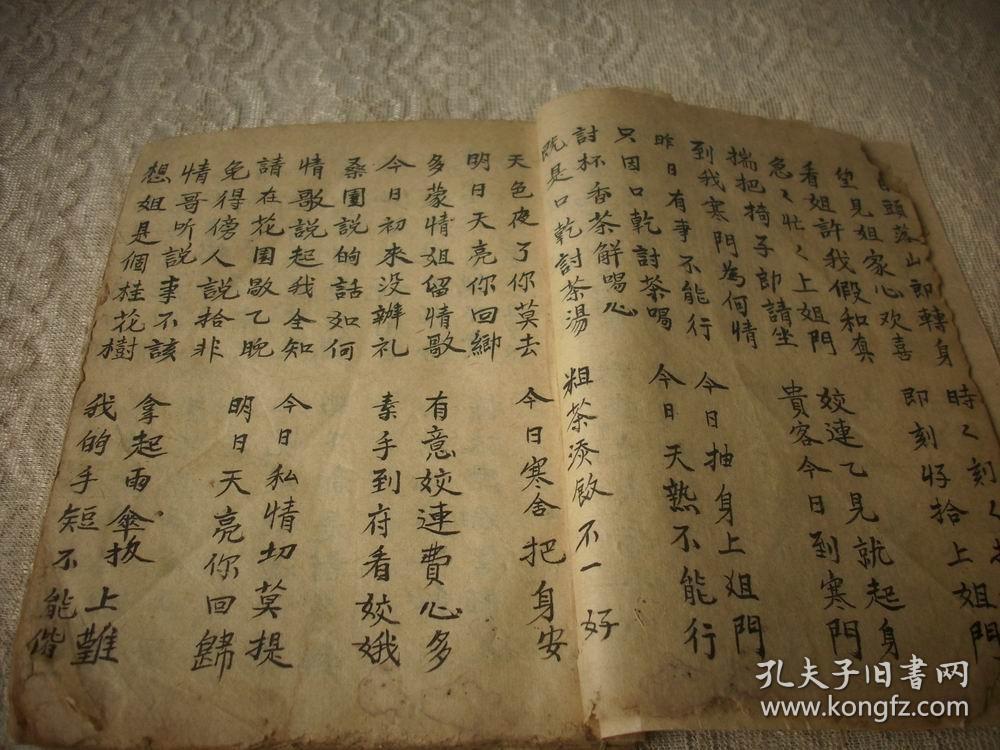 頭落山即轉身
坐見姐家心欢喜
看姐許我假和真
急〻忙〻上姐門
揣把椅子即請坐
到我寒門為何情
昨日有事不能行
只因口乾討茶喝
討杯香茶解喝心
既是口乾討茶湯
時〻刻〻姐門
即刻好拾上姐門
姣連乙見就起身
貴客今日到寒門
今日抽身上姐門
今日天熱不能行
粗茶添飲不一好
天色夜了你莫去
明日天亮你回鄉
多蒙情姐留情歌
今日初来没辦礼
桑園說的話如何
情歌說起我全知
請在花園歇乙晚
免得傍人說拾非
情哥听說事不該
想姐是個桂花樹
今日寒舍把身安
有意姣連費心多
素手到府看姣娥
今日私情切莫提
明日天亮你回歸
拿起雨傘拔上難
我的手短不能偕
孔夫子旧书网
www.kongfz.com